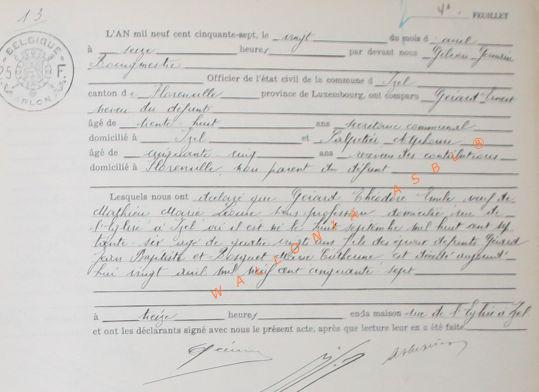 13
4e FEUILLET
BELGIQUE
ARLON
L'AN mil neuf cent cinquante-sept, le vingt du mois d avril
à seize heures par devant nous Gileau Germain
Bourgmestre
Officier de l'état civil de la commune d Izel
canton de Florenville province de Luxembourg, ont comparu Gérard Ernest
neveu du défunt
âgé de trente huit ans secrétaire communal
domicilié à Izel et Alphonse
âgé de cinquante cinq ans receveur des contributions
domicilié à Florenville, non parent du défunt
Lesquels nous ont déclaré que Gérard Théodore Emile, veuf de
Mathieu Marie sans profession domicilié rue de
l'Eglise à Izel où il est né le huit septembre mil huit cent sep
tante-six âgé de quatre vingt ans fils des époux défunts Gérard
Jean Baptiste et Marie Catherine, est décédé aujourd'
hui vingt avril mil neuf cent cinquante sept
à treize heures en da maison rue de l'Eglise à Izel
et ont les déclarants signé avec nous le présent acte, après que lecture leur en a été faite
WALLONIA ASBL ®